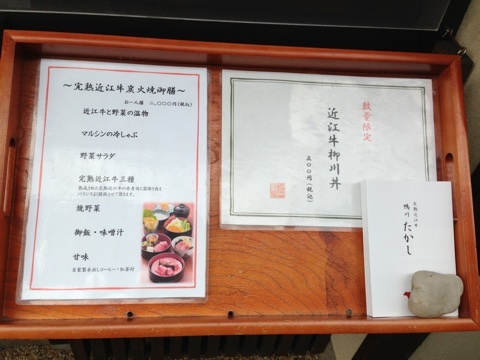 ～完熟近江牛炭火焼御膳～
お一人様 二、〇〇〇円（税込）
近江牛と野菜の温物
マルシンの冷しゃぶ
野菜サラダ
完熟近江牛三種
焼野菜
御飯・味噌汁
甘味
自家製水出しコーヒー・お茶付
数量限定
近江牛柳川丼
五〇〇円（税込）
完熟近江牛
鴨川 たかし